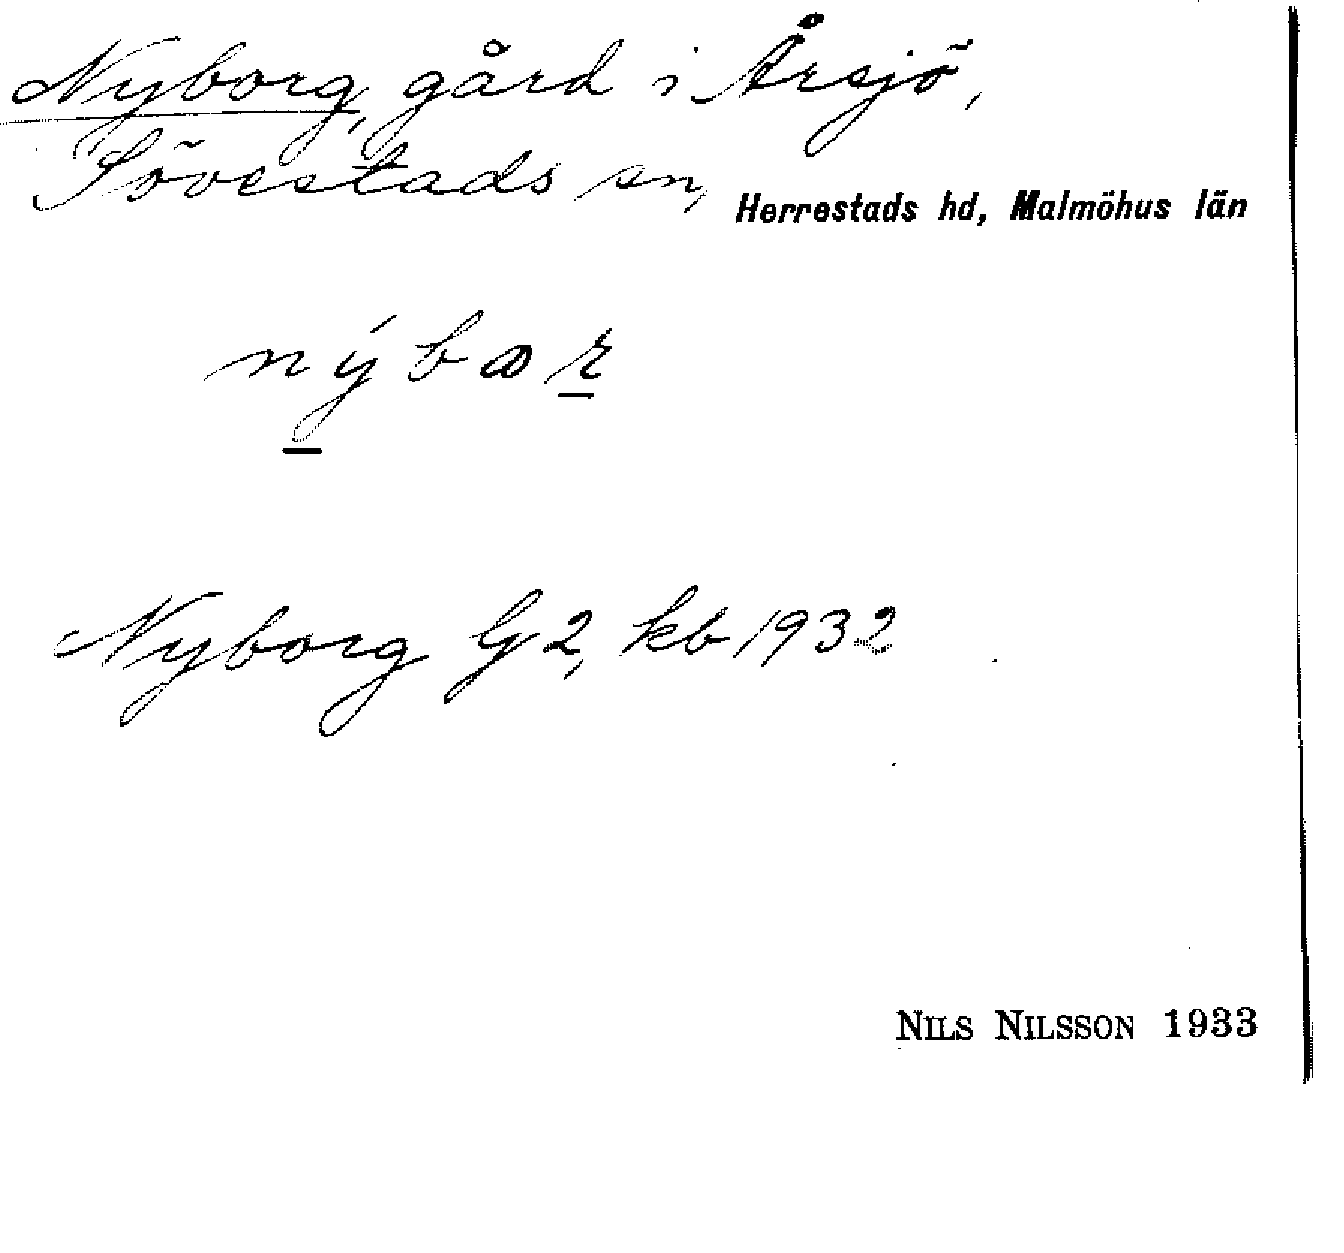 Nyborg, gård i Årsjö,
Sövestads sn, Herrestads hd, Malmöhus län
nýbor
Nyborg G2, kb 1932
NILS NILSSON 1933